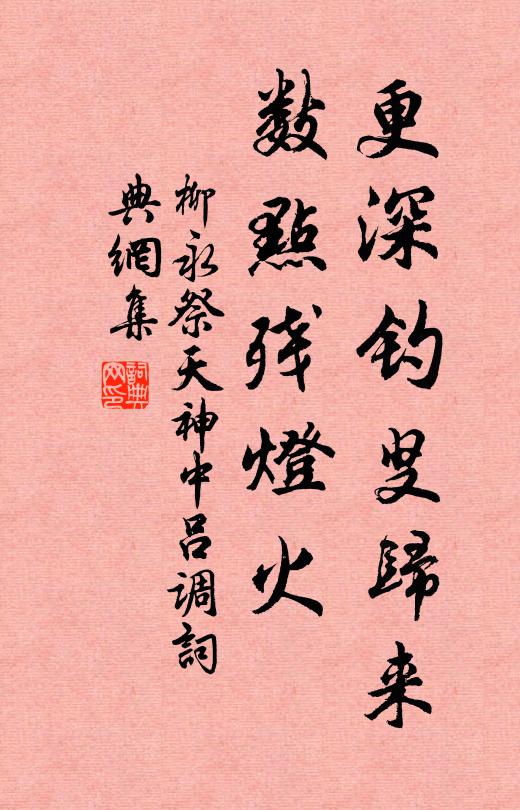 更深钓叟歸来
数點残燈火
柳永祭天神中吕調詞
典網集
詞典
网印